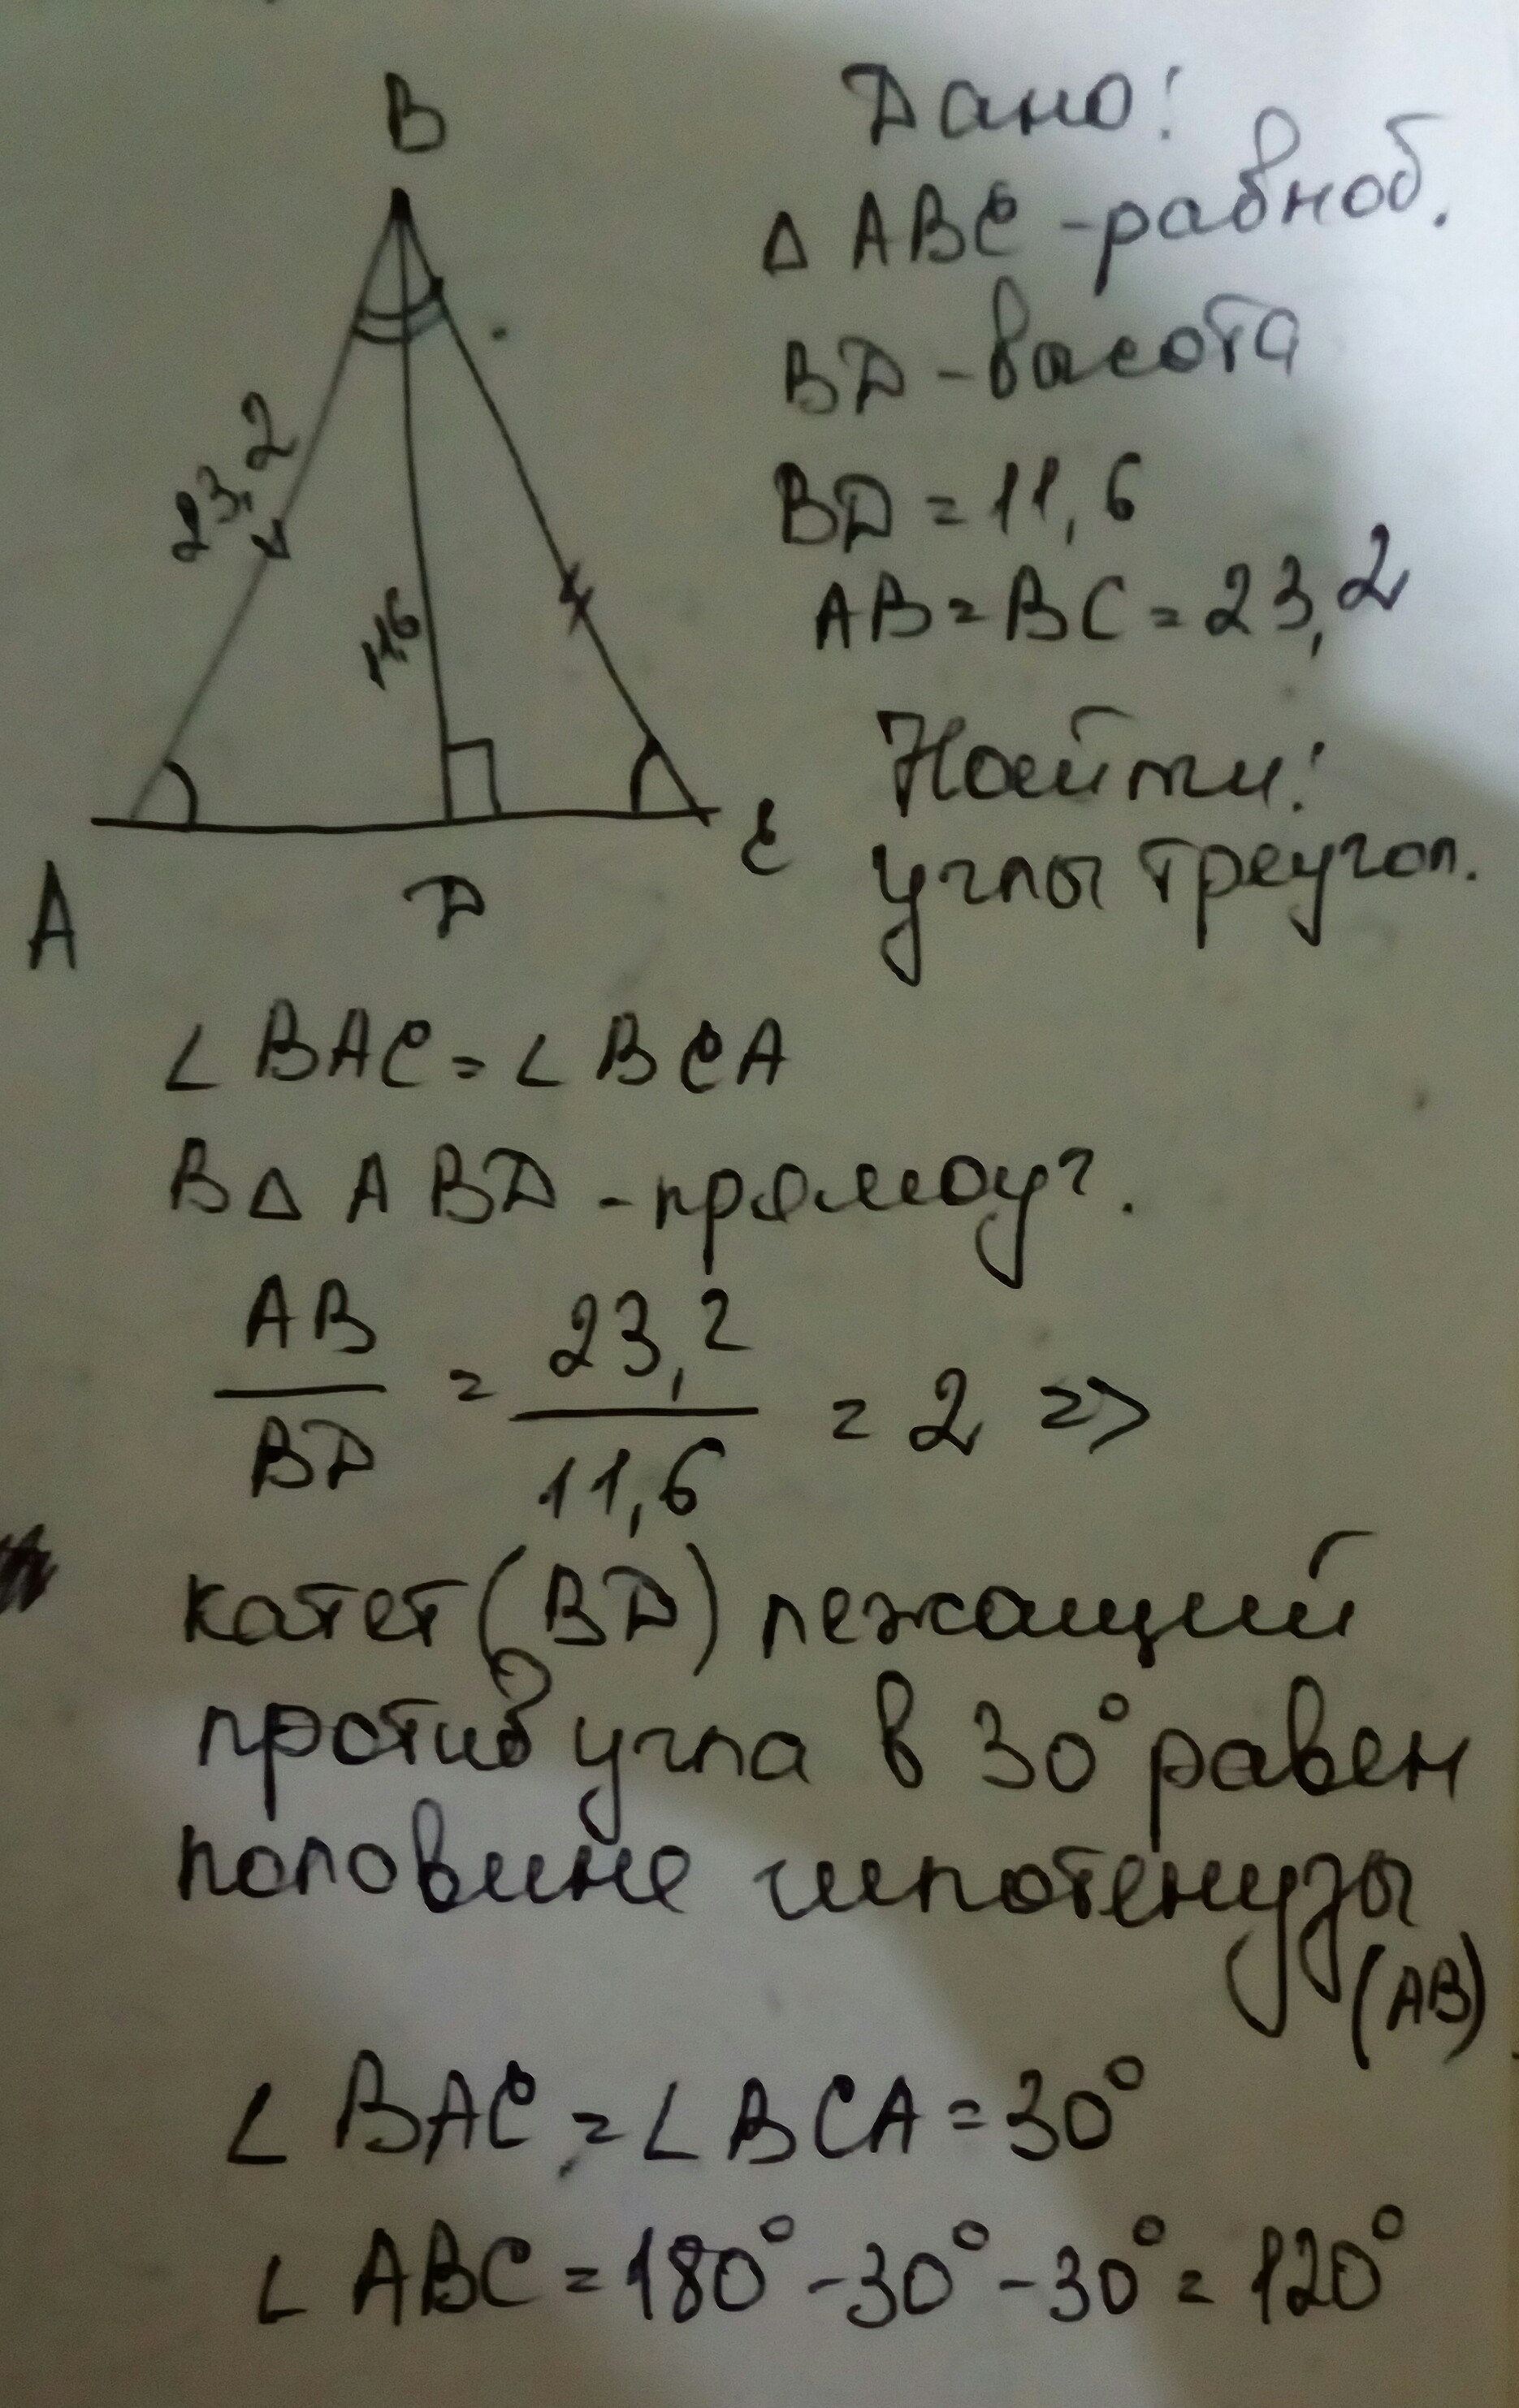 B
23,2
11,6
A
D
C
Дано:
Δ ABC - равноб.
BD - высота
BD = 11,6
AB = BC = 23,2
Найти:
углы треугол.
∠ BAC = ∠ BCA
В Δ ABD - прямоуг.
AB/BD = 23,2/11,6 = 2 =>
катет (BD) лежащий
против угла в 30° равен
половине гипотенузы
(AB)
∠ BAC = ∠ BCA = 30°
∠ ABC = 180° - 30° - 30° = 120°